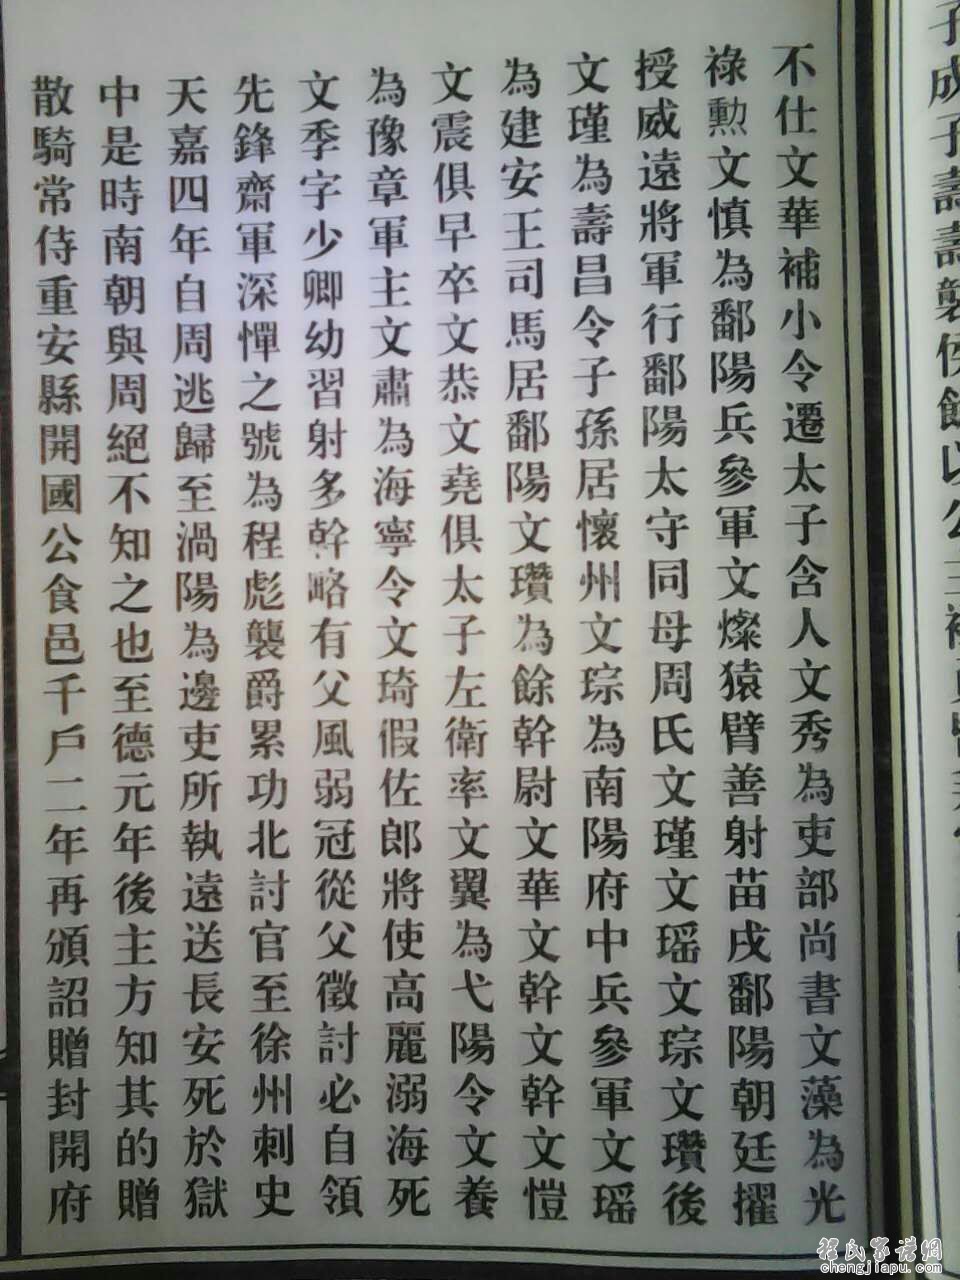 子成子壽壽襲侯
不仕文華補小令遷太子含人文秀為吏部尚書文藻為光
祿勲文慎為鄱陽兵參軍文燦猿臂善射苗戍鄱陽朝廷擢
授威遠將軍行鄱陽太守同母周氏文瑾文瑶文琮文瓚後
文瑾為壽昌令子孫居懷州文琮為南陽府中兵參軍文瑶
為建安王司馬居鄱陽文瓚為餘幹尉文華文幹文幹文愷
文震俱早卒文恭文堯俱太子左衛率文翼為弋陽令文養
為豫章軍主文肅為海寧令文琦假佐郎將使高麗溺海死
文季字少卿幼習射多幹略有父風弱冠從父徵討必自領
先鋒齋軍深憚之號為程彪襲爵累功北討官至徐州刺史
天嘉四年自周逃歸至渦陽為邊吏所執遠送長安死於獄
中是時南朝與周絕不知之也至德元年後主方知其的贈
散騎常侍重安縣開國公食邑千戶二年再頒詔贈封開府
程氏家谱網
chengjiapu.com